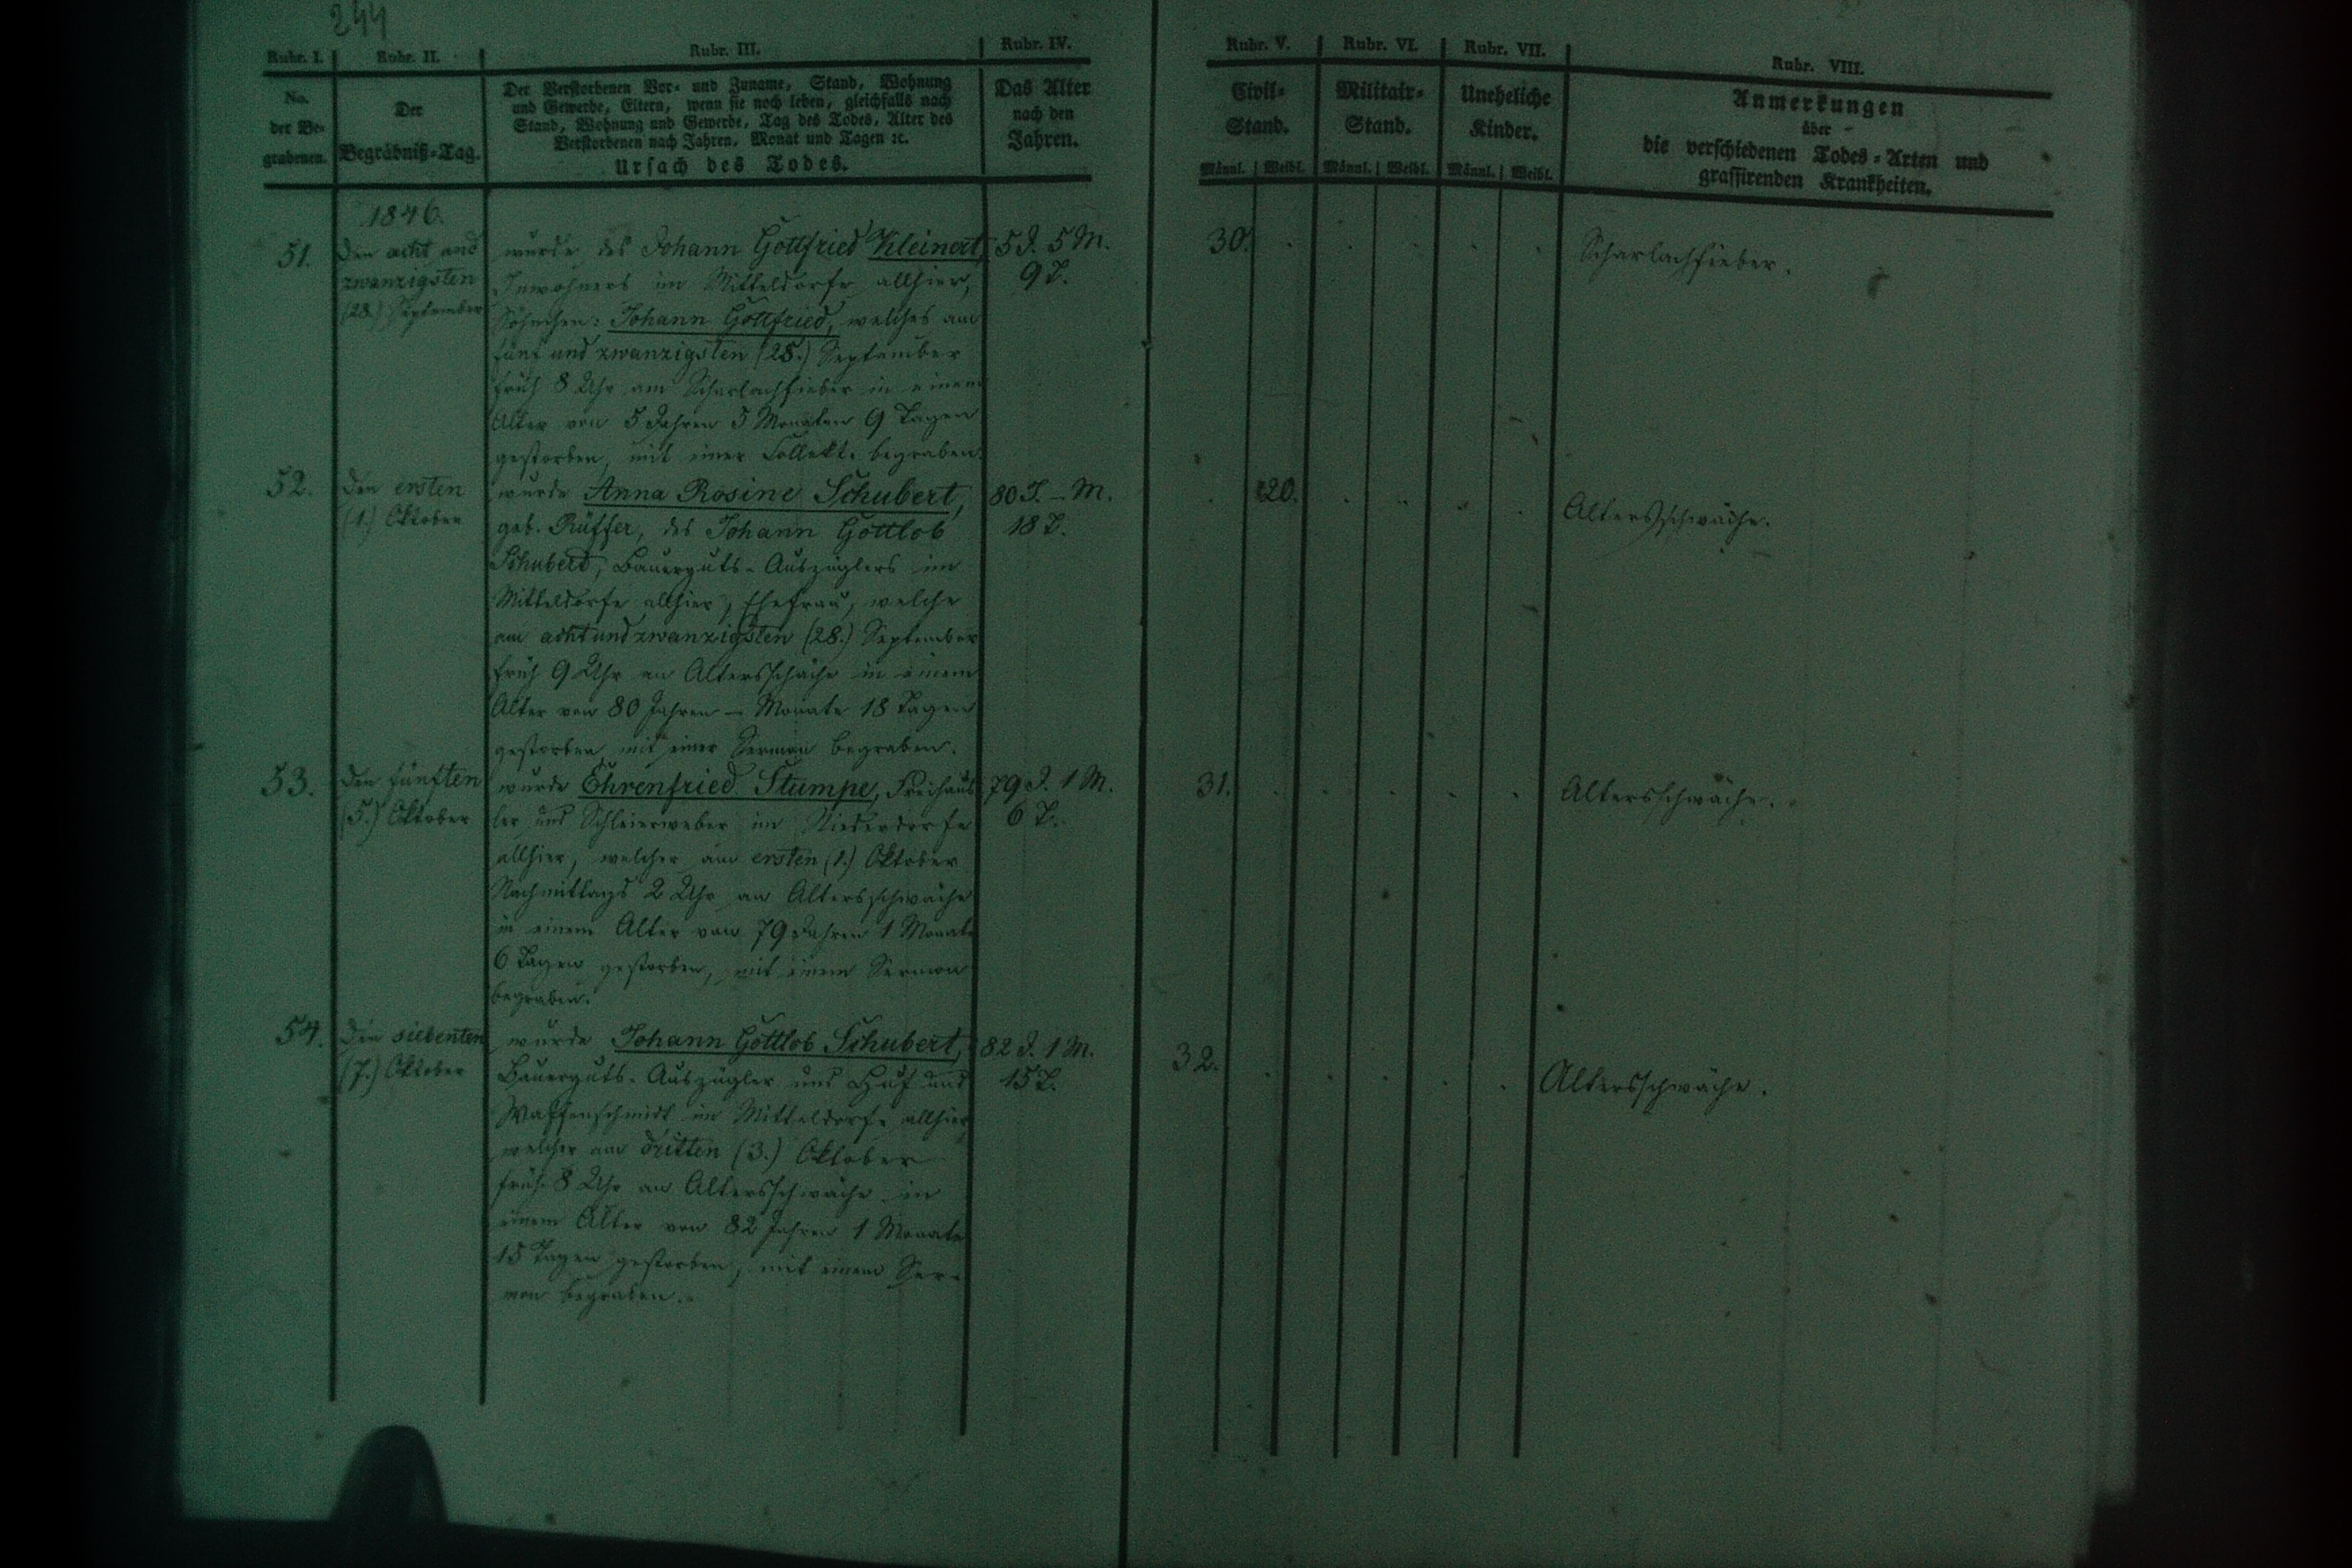 244
Rubr. I. Rubr. II. Rubr. III. Rubr. IV. Rubr. V. Rubr. VI. Rubr. VII. Rubr. VIII.
No.
der Be-
grabenen.
Der
Begräbniß-Tag.
Der Verstorbenen Vor- und Zuname, Stand, Wohnung
und Gewerbe, Eltern, wenn sie noch leben, gleichfalls nach
Stand, Wohnung und Gewerbe, Tag des Todes, Alter des
Verstorbenen nach Jahren, Monat und Tagen ꝛc.
Ursach des Todes.
Das Alter
nach den
Jahren.
Civil-
Stand.
Männl. Weibl.
Militair-
Stand.
Männl. Weibl.
Uneheliche
Kinder.
Männl. Weibl.
Anmerkungen
über
die verschiedenen Todes-Arten und
grassirenden Krankheiten.
1846.
51.
Den acht und
zwanzigsten
(28.) September
wurde des Johann Gottfried Kleinert,
Inwohners im Mitteldorfe allhier,
Söhnchen: Johann Gottfried, welches am
fünf und zwanzigsten (25.) September
früh 8 Uhr am Scharlachfieber in einem
Alter von 5 Jahren 5 Monaten 9 Tagen
gestorben, mit einer Collekte begraben.
5 J. 5 M.
9 T.
30.
Scharlachfieber.
52.
Den ersten
(1.) Oktober
wurde Anna Rosine Schubert,
geb. Rüffer, des Johann Gottlob
Schubert, Bauerguts-Auszüglers im
Mitteldorfe allhier, Ehefrau, welche
am acht und zwanzigsten (28.) September
früh 9 Uhr an Altersschäche in einem
Alter von 80 Jahren – Monate 18 Tagen
gestorben mit einer Sermon begraben.
80 J. – M.
18 T.
20.
Altersschwäche.
53.
Den fünften
(5.) Oktober
wurde Ehrenfried Stumpe, Freihäus
ler und Schleierweber im Niederdorfe
allhier, welcher am ersten (1.) Oktober
Nachmittags 2 Uhr an Altersschwäche
in einem Alter von 79 Jahren 1 Monate
6 Tagen gestorben, mit einem Sermon
begraben.
79 J. 1 M.
6 T.
31.
Altersschwäche.
54.
Den siebenten
(7.) Oktober
wurde Johann Gottlob Schubert,
Bauerguts-Auszügler und Huf und
Waffenschmidt im Mitteldorfe allhier
welcher am dritten (3.) Oktober
früh 8 Uhr an Altersschwäche in
einem Alter von 82 Jahren 1 Monate
15 Tagen gestorben, mit einem Ser-
mon begraben.
82 J. 1 M.
15 T.
32.
Altersschwäche.